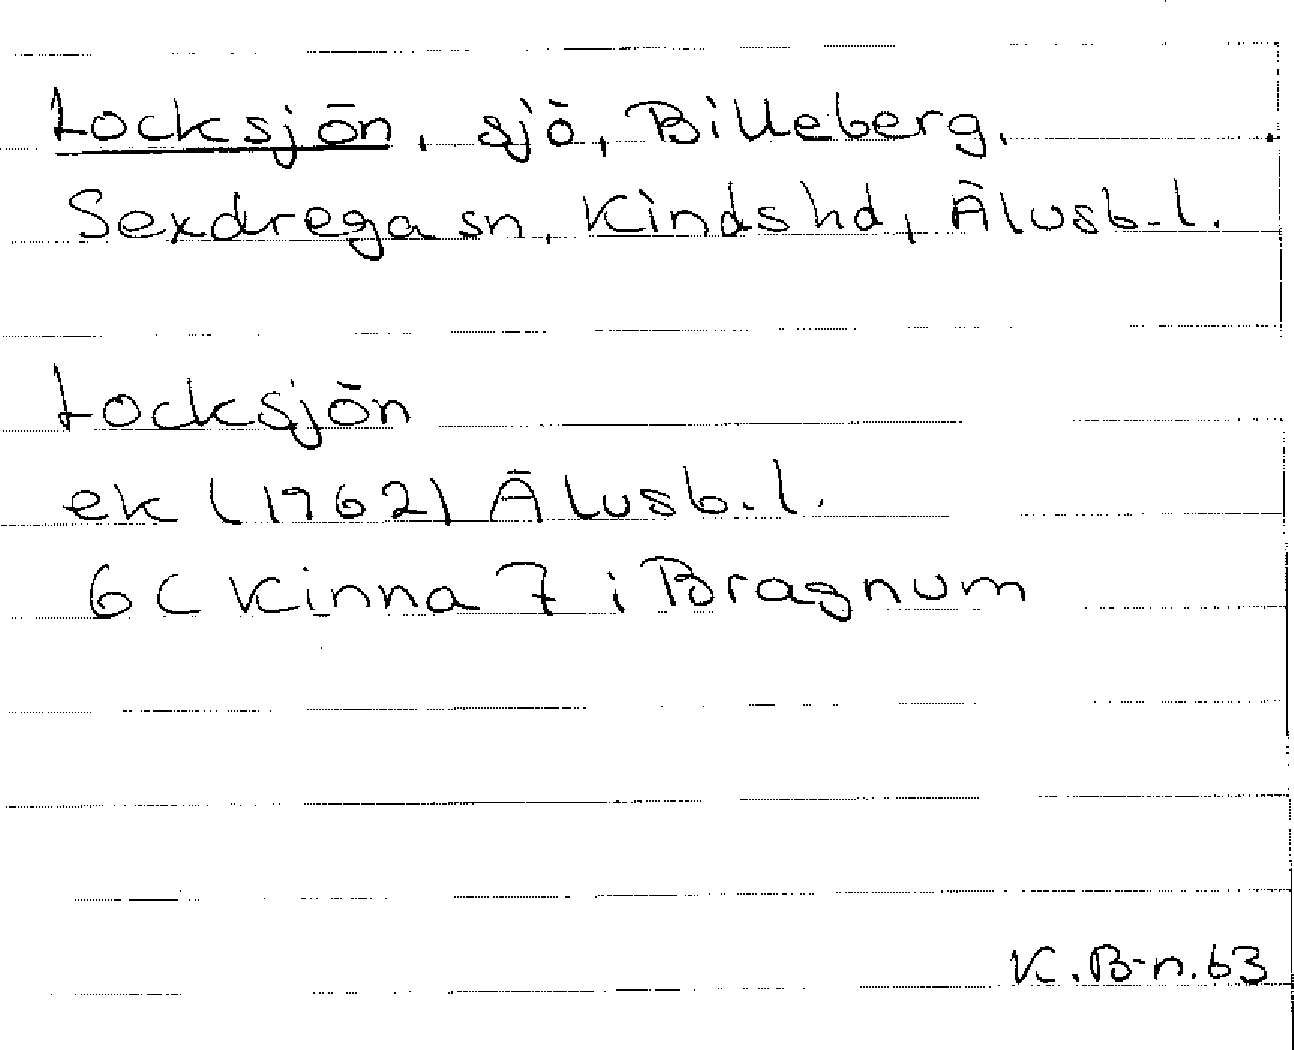 Locksjön, sjö, Billeberg,
Sexdrega sn, Kinds hd, Älvsb. l.
Locksjön
ek (1962) Älvsb. l.
6C Kinna 7 i Bragnum
K.B-n.63